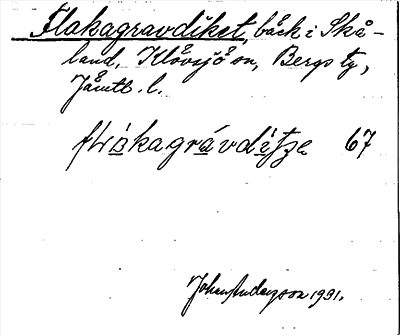 Flakagravdiket, bäck i Skå-
land, Klövsjö sn, Bergs tg,
Jämtl. l.
flàkagrávdìtʃe 67
Johan Anderson 1931.